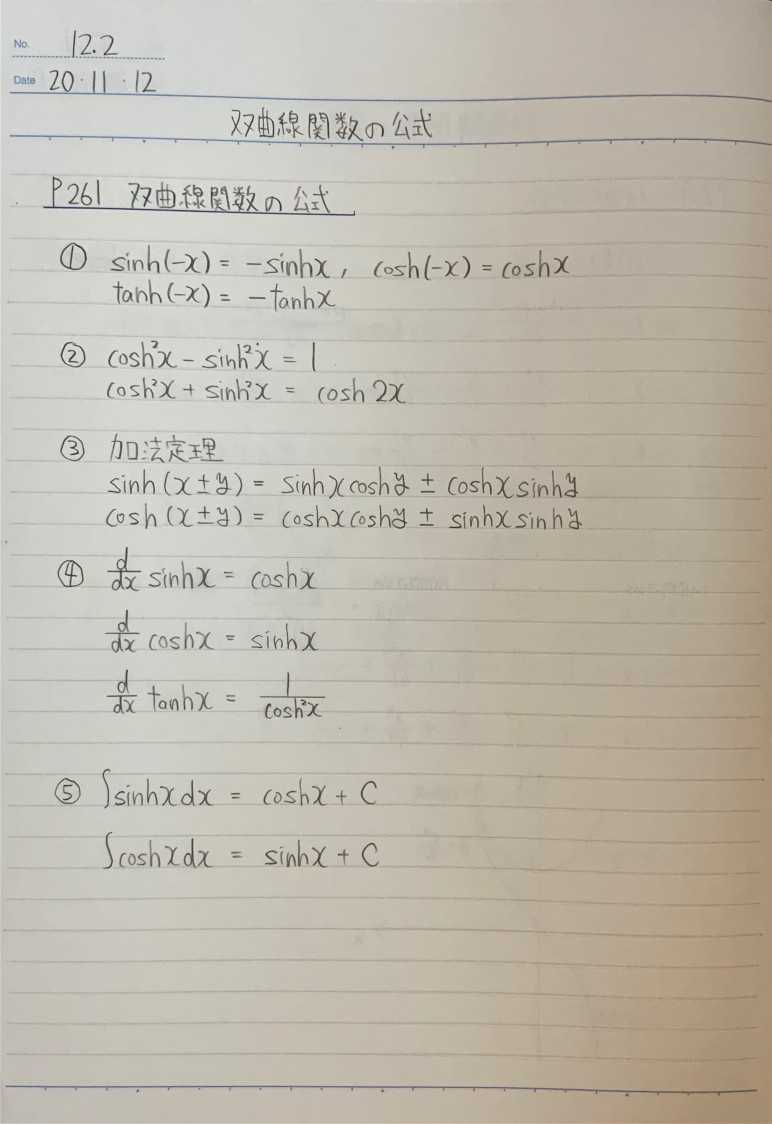 No. 12.2
Date 20・11・12
双曲線関数の公式
P261 双曲線関数の公式
① sinh(-x) = -sinhx, cosh(-x) = coshx
tanh(-x) = -tanhx
② cosh²x - sinh²x = 1
cosh²x + sinh²x = cosh 2x
③ 加法定理
sinh(x±y) = sinhxcoshy ± coshxsinhy
cosh(x±y) = coshxcoshy ± sinhxsinhy
④ d/dx sinhx = coshx
d/dx coshx = sinhx
d/dx tanhx = 1/cosh²x
⑤ ∫sinhxdx = coshx + C
∫coshxdx = sinhx + C